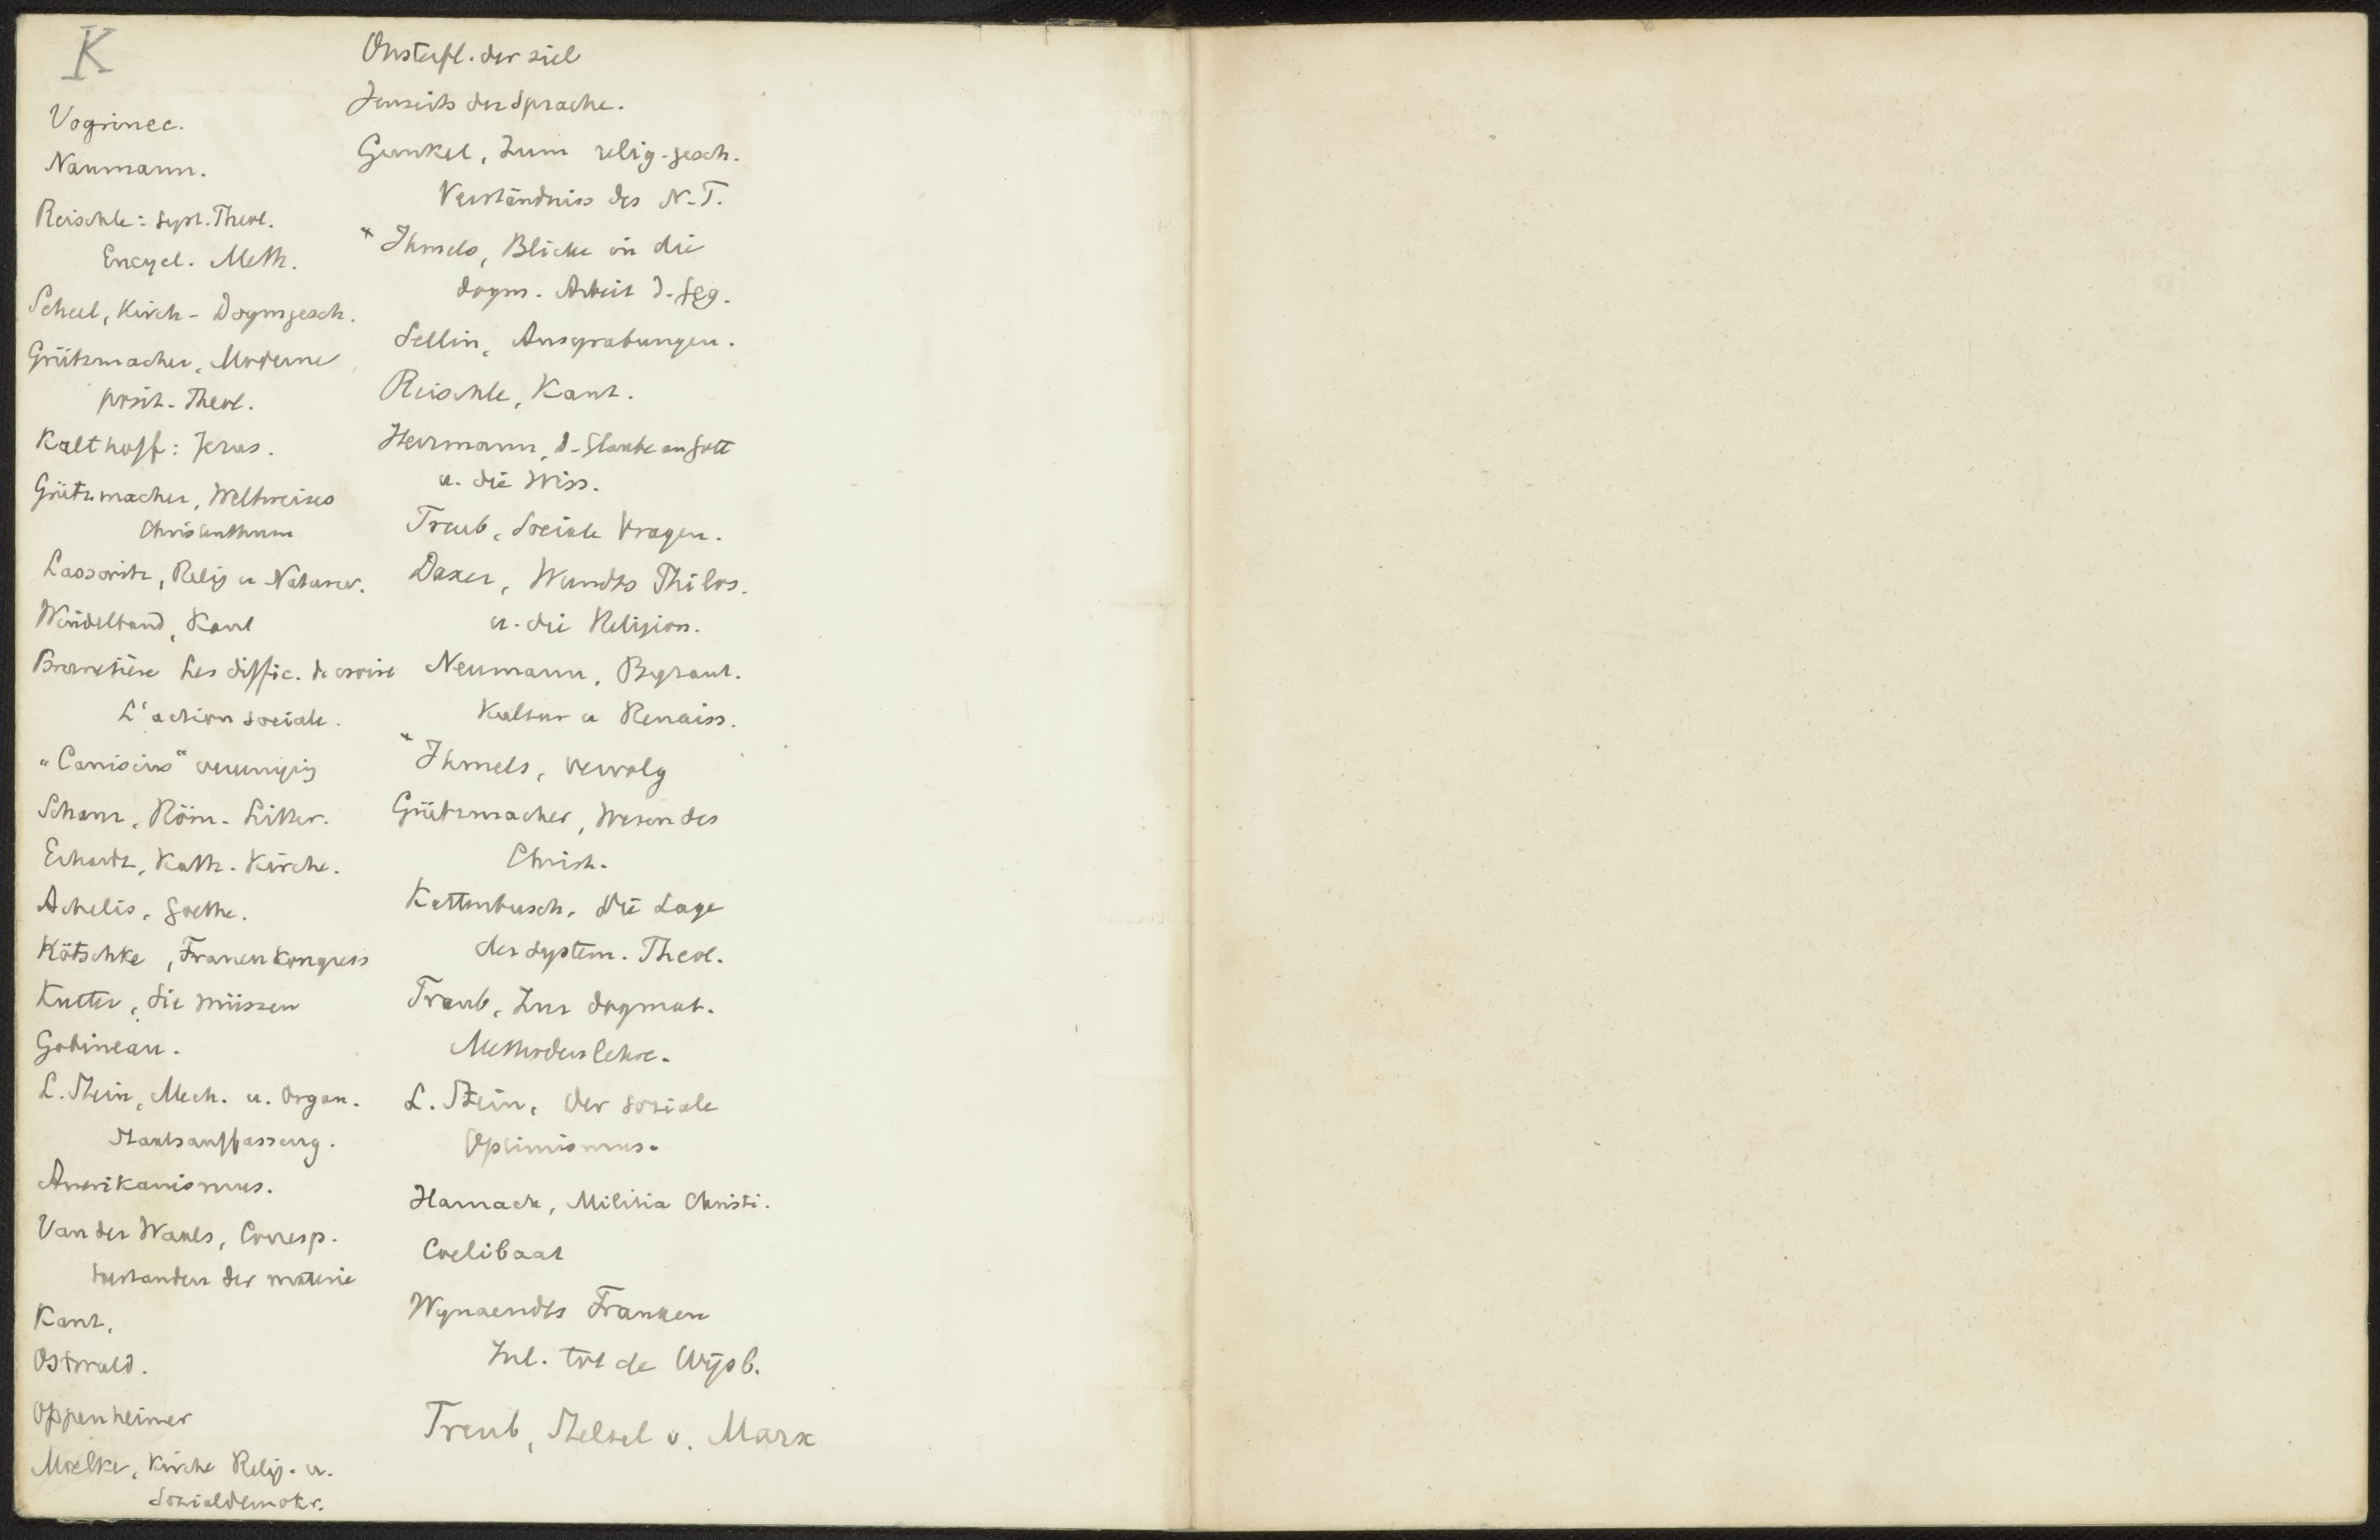 K
Vogrinec.
Naumann.
Reischle: Syst. Theol.
Encycl. Meth.
Scheel, Kirch- Dogmgesch.
Grützmacher, Moderne
posit. Theol.
Kalthoff: Jesus.
Grützmacher, Weltweises
Christenthum
Lasswitz, Relig u Naturw.
Windelband, Kant
Brunetière Les diffic. de croire
L'action sociale.
"Canisius" vereeniging
Schanz, Röm. Litter.
Erhardt, Kath. Kirche.
Achelis, Goethe.
Kötschke, Frauenkongress
Kutter, Sie müssen
Gobineau.
L. Stein, Mech. u. Organ.
Staatsauffassung.
Amerikanismus.
Van der Waals, Corresp.
toestanden der materie
Kant.
Ostwald.
Oppenheimer
Moelke, Kirche Relig. u.
Sozialdemokr.
Onsterfl. der ziel
Jenseits der Sprache.
Gunkel, Zum relig-gesch.
Verständniss des N.T.
* Ihmels, Blicke in die
dogm. Arbeit d. Ggg.
Sellin, Ausgrabungen.
Reischle, Kant.
Herrmann, d. Glaube an Gott
u. die Wiss.
Treub, Sociale Vragen.
Daxer, Wundts Philos.
u. die Religion.
Neumann, Byzant.
Kultur u Renaiss.
* Ihmels, vervolg
Grützmacher, Wesen des
Christ.
Kattenbusch, Die Lage
der system. Theol.
Traub, Zur dogmat.
Methodenlehre.
L. Stein, Der soziale
Optimismus.
Harnack, Militia Christi.
Coelibaat
Wynaendts Francken
Inl. tot de Wijsb.
Treub, Stelsel v. Marx